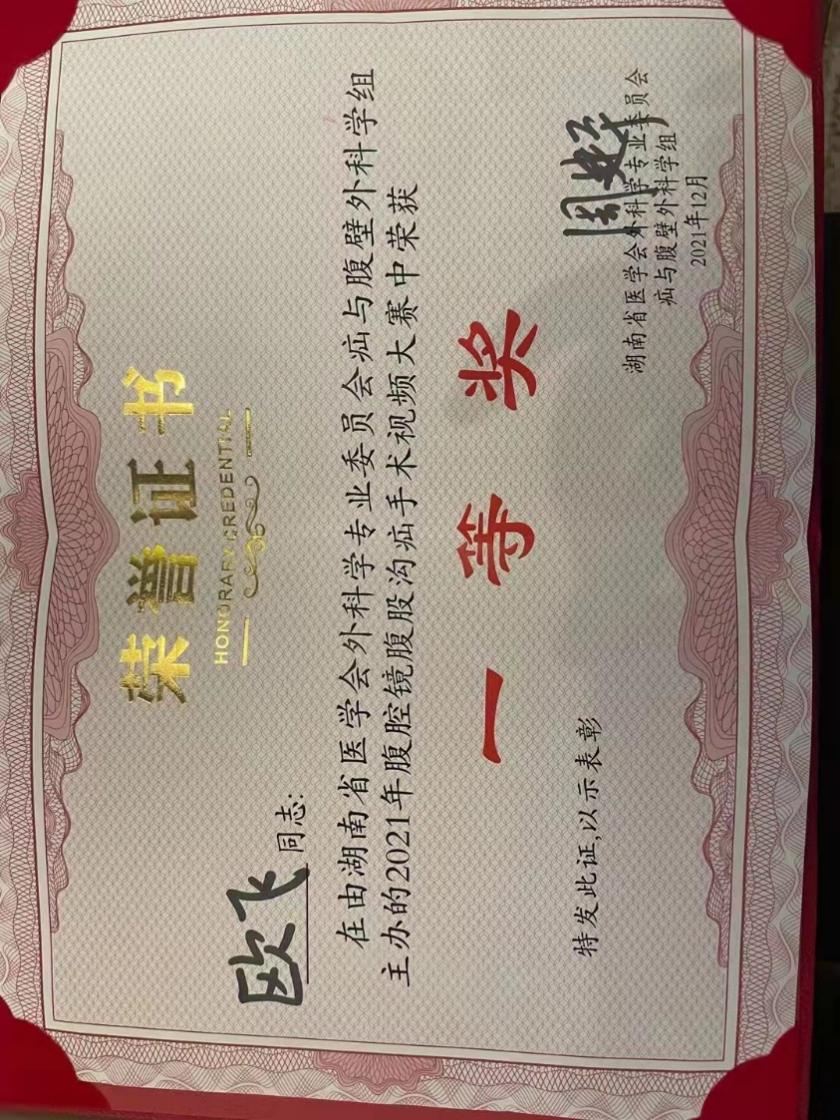 荣誉证书
HONORARY CREDENTIAL
欧飞同志:
在由湖南省医学会外科学专业委员会疝与腹壁外科学组
主办的2021年腹腔镜腹股沟疝手术视频大赛中荣获
一等奖
特发此证,以示表彰
湖南省医学会外科学专业委员会
疝与腹壁外科学组
2021年12月